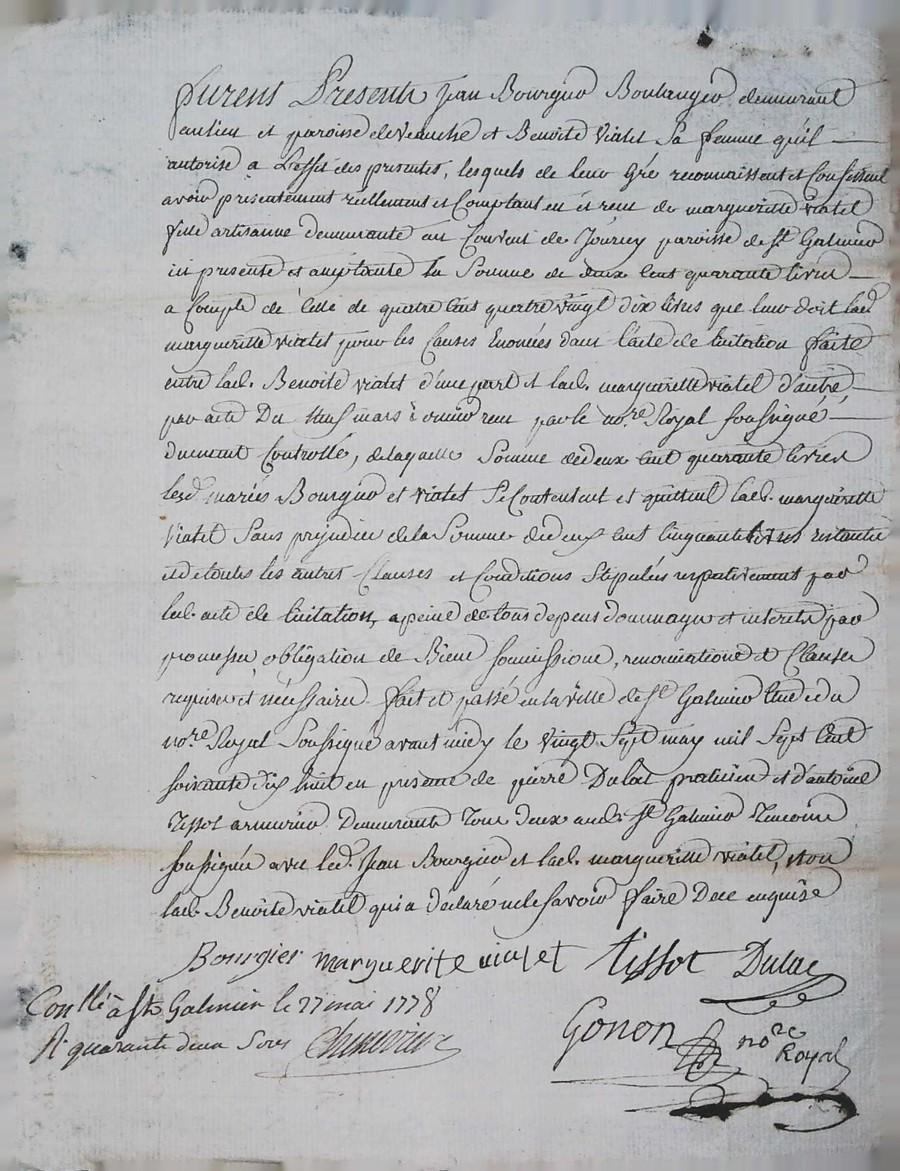 furent Presents Jean Bourgier Boulanger demeurant
au lieu et paroisse de veauche et Benoite Vialet Sa femme qu'il
autorise a L'effet des presentes, lesquels de leur Gré reconnaissent et Confessent
avoir presentement réellement et Comptant eu et recu de margueritte vialet
fille artisanne demeurante au Couvent de Jourcey paroisse de St Galmier
ici presente et acceptante la Somme de deux Cent quarante livres
a Compte de Celle de quatre Cent quatre vingt dix livres que leur doit lad.
margueritte vialet pour les Causes Enoncées dans l'acte de licitation faite
entre lad. Benoite vialet d'une part et lad. margueritte vialet d'autre
par acte Du neuf mars dernier recu par le nore. Royal soussigné
duement Controllé, de laquelle Somme de deux Cent quarante livres
Lesd. mariés Bourgier et vialet Se Contentent et quittent lad. margueritte
Vialet Sans prejudice de la Somme de deux Cent Cinquante livres restante
et de toutes les autres Clauses et Conditions Stipulés respectivement par
led. acte de licitation, a peine de tous depens dommages et interets par
promesses obligation de Biens soumissions, renonciations et Clauses
requises et nécessaires fait et passé en la ville de St Galmier Etude du
nore. Royal Soussigné avant midy le Vingt Sept may mil Sept Cent
soixante dix huit en presence de pierre Dulac praticien et d'antoine
Tissot armurier Demeurants Tous deux aud. St Galmier Temoins
soussignés avec led. Jean Bourgier et lad. margueritte vialet, non
lad. Benoite vialet qui a declaré ne le savoir faire De ce enquise
Bourgier marguerite vialet tissot Dulac
Conllé à St Galmier le 27 mai 1778
R. quarante deux Sols
Gonon nore Royal